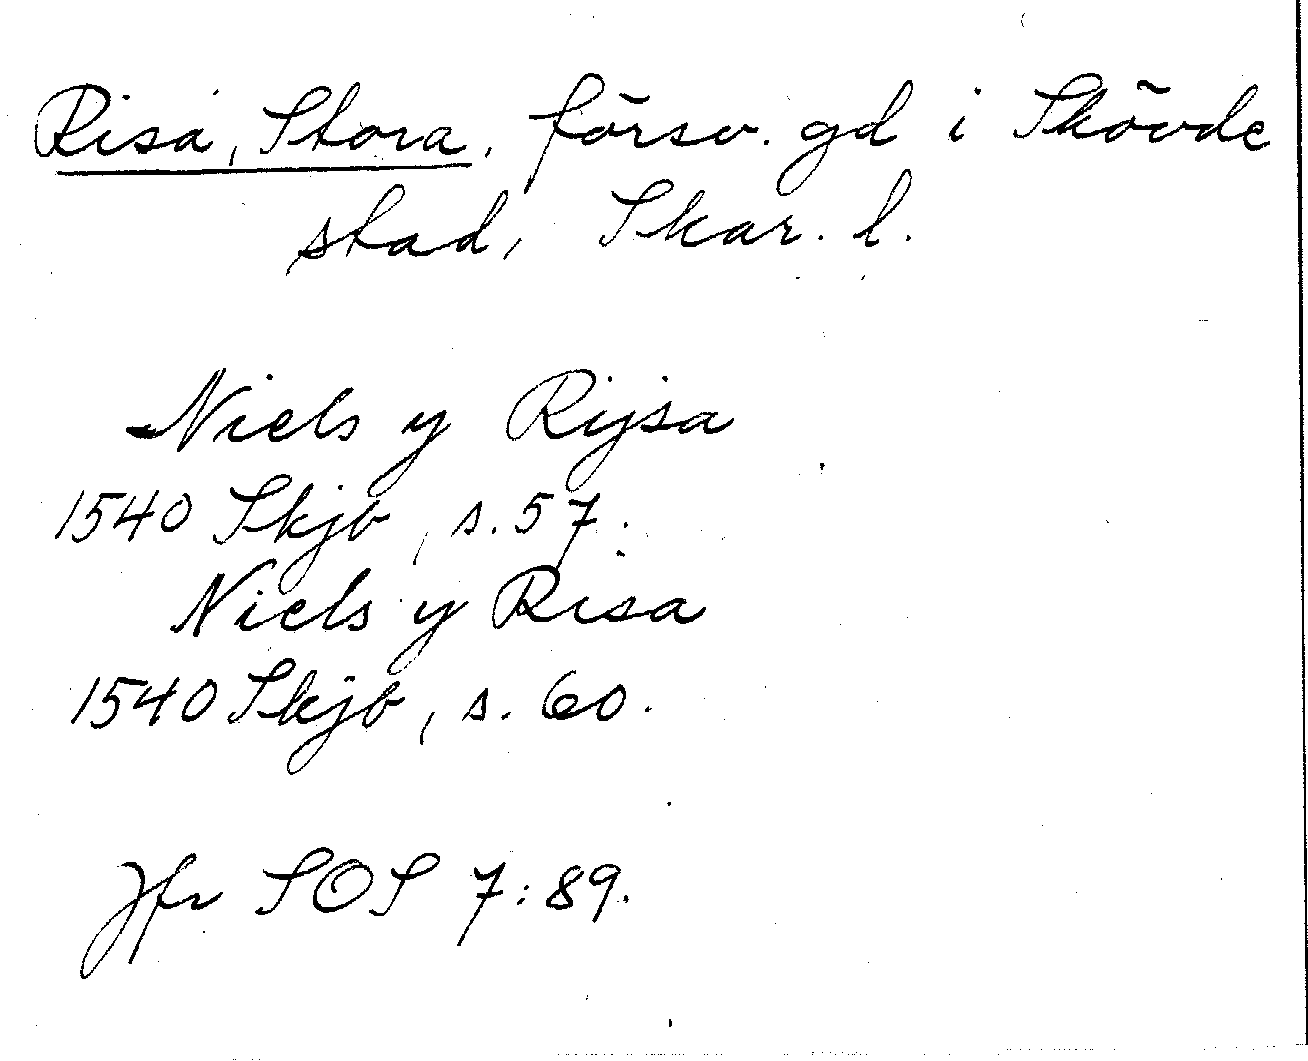 Risa, Stora, försv. gd i Skövde
stad, Skar. l.
Niels y Rijsa
1540 Skjb, s. 57.
Niels y Risa
1540 Skjb, s. 60.
Jfr SOS 7:89.